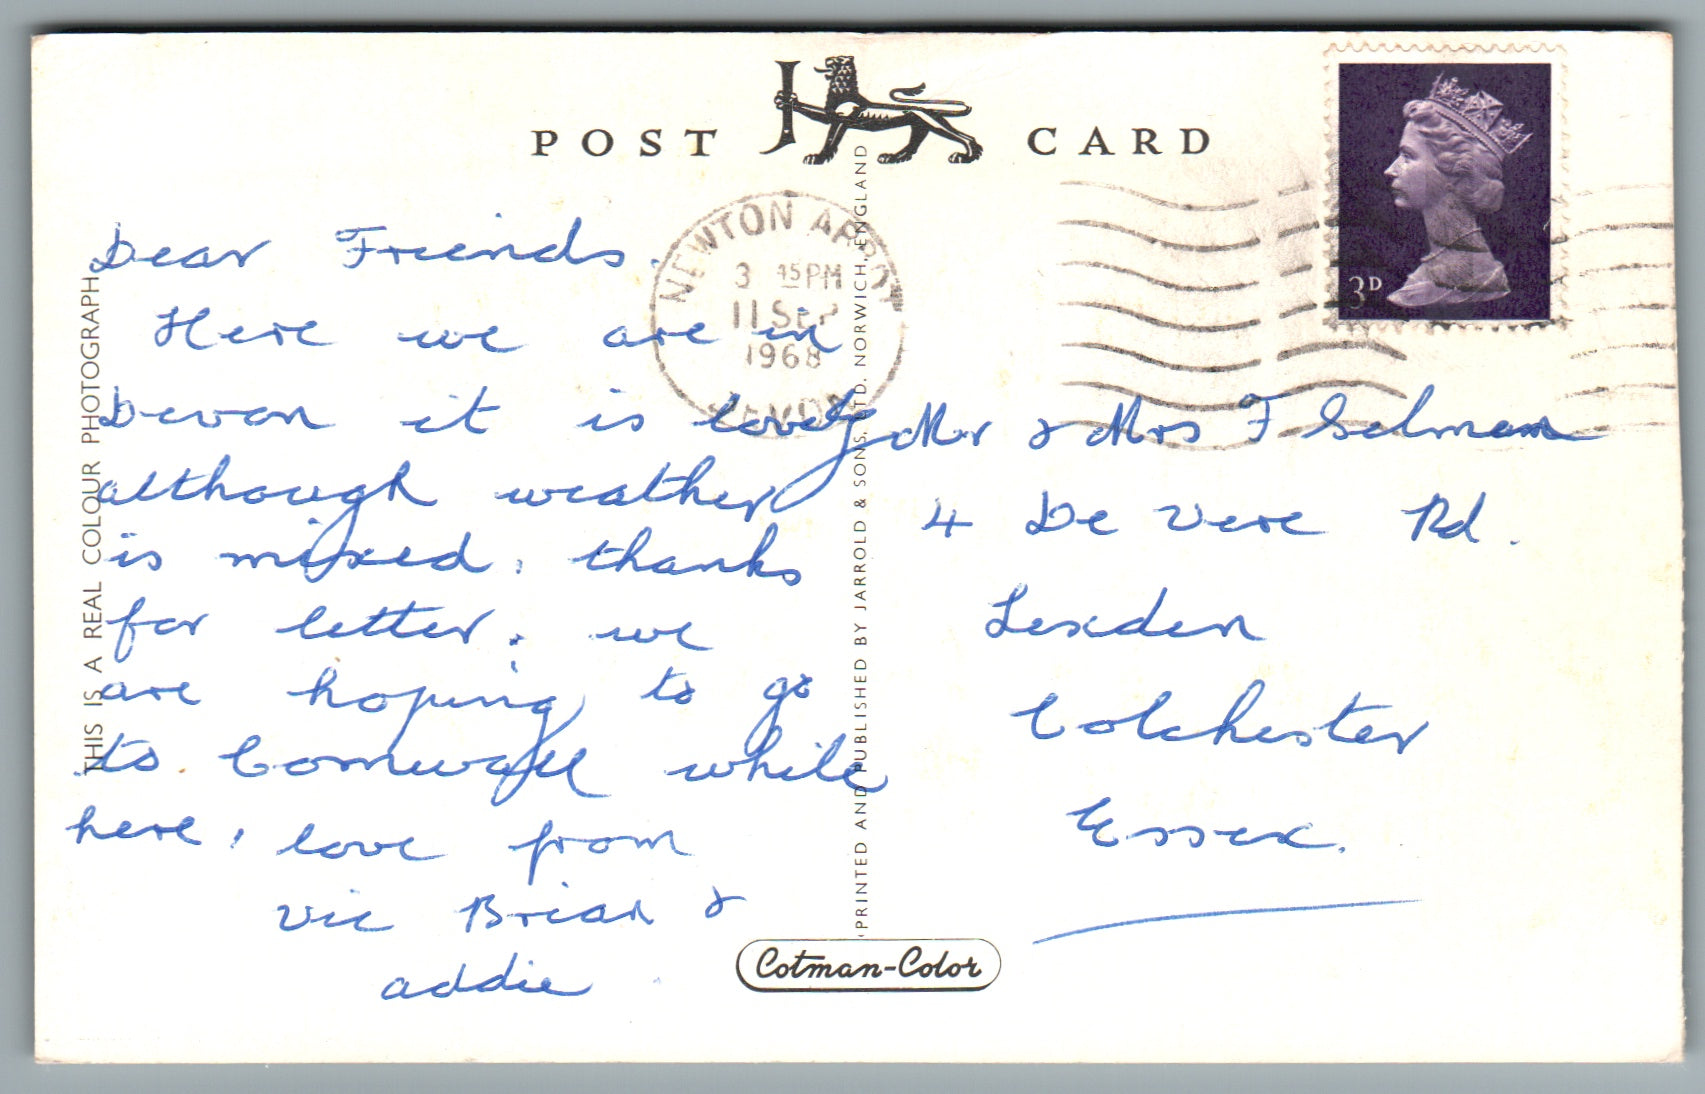 POST CARD
NEWTON ABBOT
3 45PM
11 SEP
1968
DEVON
3D
Dear Friends.
Here we are in
Devon it is lovely
although weather
is mixed. thanks
for letter. we
are hoping to go
to Cornwall while
here. love from
Vic Brian &
addie
Mr & Mrs F Selman
4 De Vere Rd.
Lexden
Colchester
Essex.
THIS IS A REAL COLOUR PHOTOGRAPH
PRINTED AND PUBLISHED BY JARROLD & SONS, LTD. NORWICH, ENGLAND
Cotman-Color